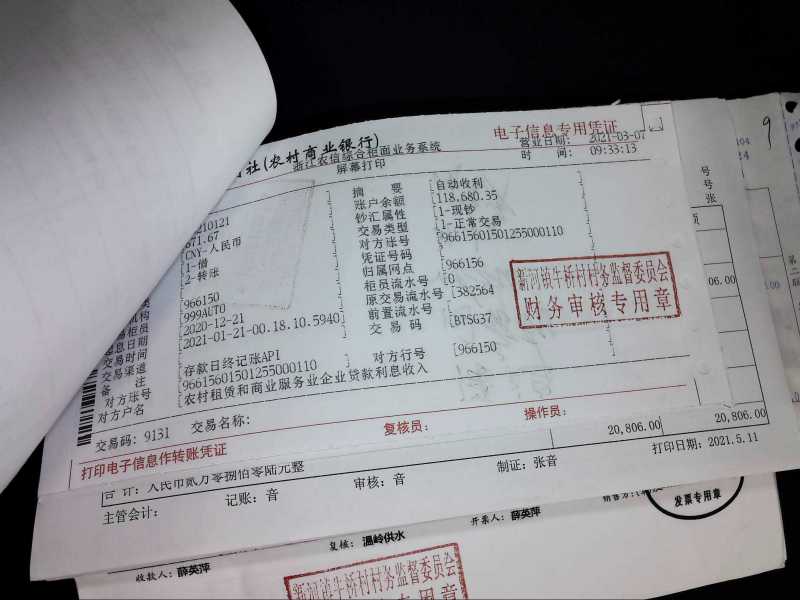 社(农村商业银行)
电子信息专用凭证
浙江农信综合柜面业务系统
营业日期: 2021-03-07
屏幕打印
时 间: 09:33:13
摘 要 [自动收利 ]
账户余额 [118,680.35 ]
0210121 ] 钞汇属性 [1-现钞 ]
671.67 ] 交易类型 [1-正常交易 ]
CNY-人民币 ] 对方账号 [966156015012550001​10 ]
1-借 ] 凭证号码 [ ]
2-转账 ] 归属网点 [966156 ]
柜员流水号 [0 ]
966150 ] 原交易流水号 [382564 ]
999AUTO ] 前置流水号 [ ]
2020-12-21 ] 交 易 码 [BTSG37 ]
2021-01-21-00.18.10.5940]
类
机构
交易柜员
起息日期
交易时间
交易渠道 [存款日终记账API ] 对方行号 [966150 ]
备 注
对方账号 [96615601501255000110 ]
对方户名 [农村租赁和商业服务业企业贷款利息收入 ]
新河镇牛桥村村务监督委员会
财务审核专用章
交易码: 9131 交易名称: 复核员: 操作员:
打印电子信息作转账凭证
号
号
张
06.00
06.00
第
二
联
9
合 计: 人民币贰万零捌佰零陆元整 20,806.00 20,806.00
主管会计: 记账: 音 审核: 音 制证: 张音 打印日期: 2021.5.11
收款人: 薛英萍 复核: 温岭供水 开票人: 薛英萍
发票专用章
新河镇牛桥村村务监督委员会